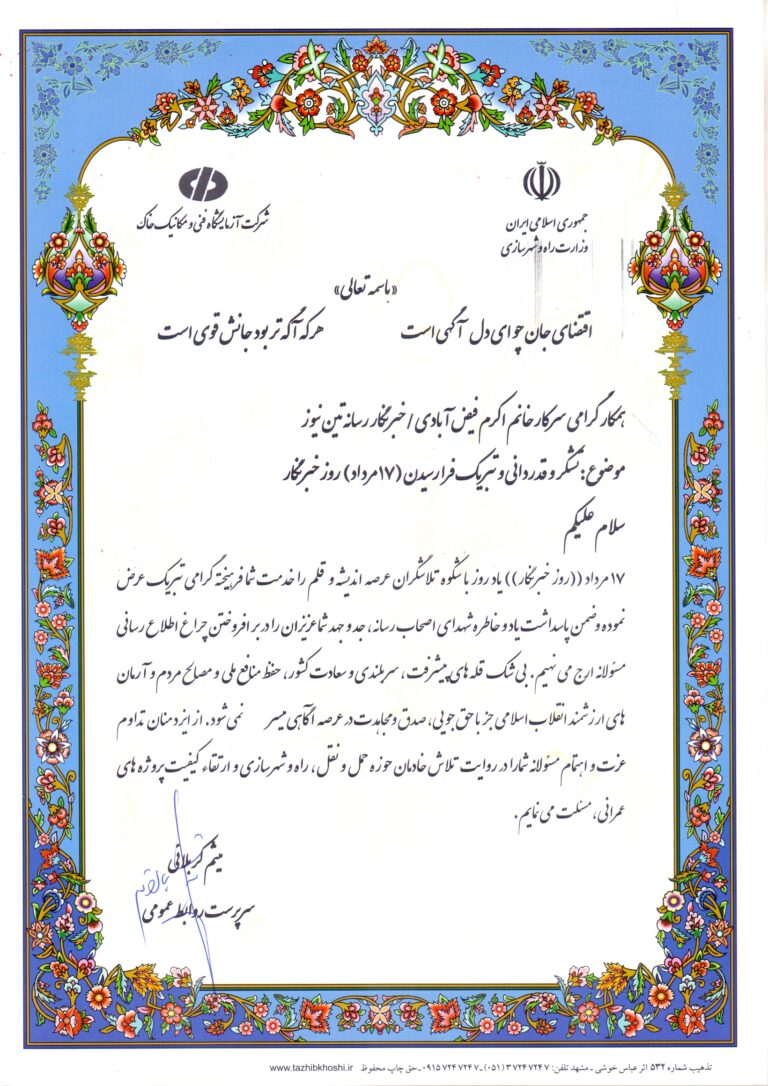 جمهوری اسلامی ایران
وزارت راه و شهرسازی
شرکت آزمایشگاه فنی و مکانیک خاک
«باسمه تعالی»
اقتضای جان چو ای دل آگهی است هر که آگه تر بود جانش قوی است
همکار گرامی سرکار خانم اکرم فیض آبادی / خبرنگار رسانه تین نیوز
موضوع: تشکر و قدردانی و تبریک فرا رسیدن (۱۷ مرداد) روز خبرنگار
سلام علیکم
۱۷ مرداد ((روز خبرنگار)) یاد روز با شکوه تلاشگران عرصه اندیشه و قلم را خدمت شما فرهیخته گرامی تبریک عرض
نموده و ضمن پاسداشت یاد و خاطره شهدای اصحاب رسانه، جد و جهد شما عزیزان را در بر افروختن چراغ اطلاع رسانی
مسئولانه ارج می نهیم. بی شک قله های پیشرفت، سربلندی و سعادت کشور، حفظ منافع ملی و مصالح مردم و آرمان
های ارزشمند انقلاب اسلامی جز با حق جویی، صدق و مجاهدت در عرصه آگاهی میسر نمی شود. از ایزد منان تداوم
عزت و اهتمام مسئولانه شما را در روایت تلاش خادمان حوزه حمل و نقل، راه و شهرسازی و ارتقاء کیفیت پروژه های
عمرانی، مسئلت می نمایم.
میثم کربلائی
سرپرست روابط عمومی
تذهیب شماره ۵۳۲ اثر عباس خوشی - مشهد تلفن: ۳۷۲۴۷۲۴۷ (۰۵۱) - ۰۹۱۵۷۲۴۷۲۴۷ - حق چاپ محفوظ www.tazhibkhoshi.ir